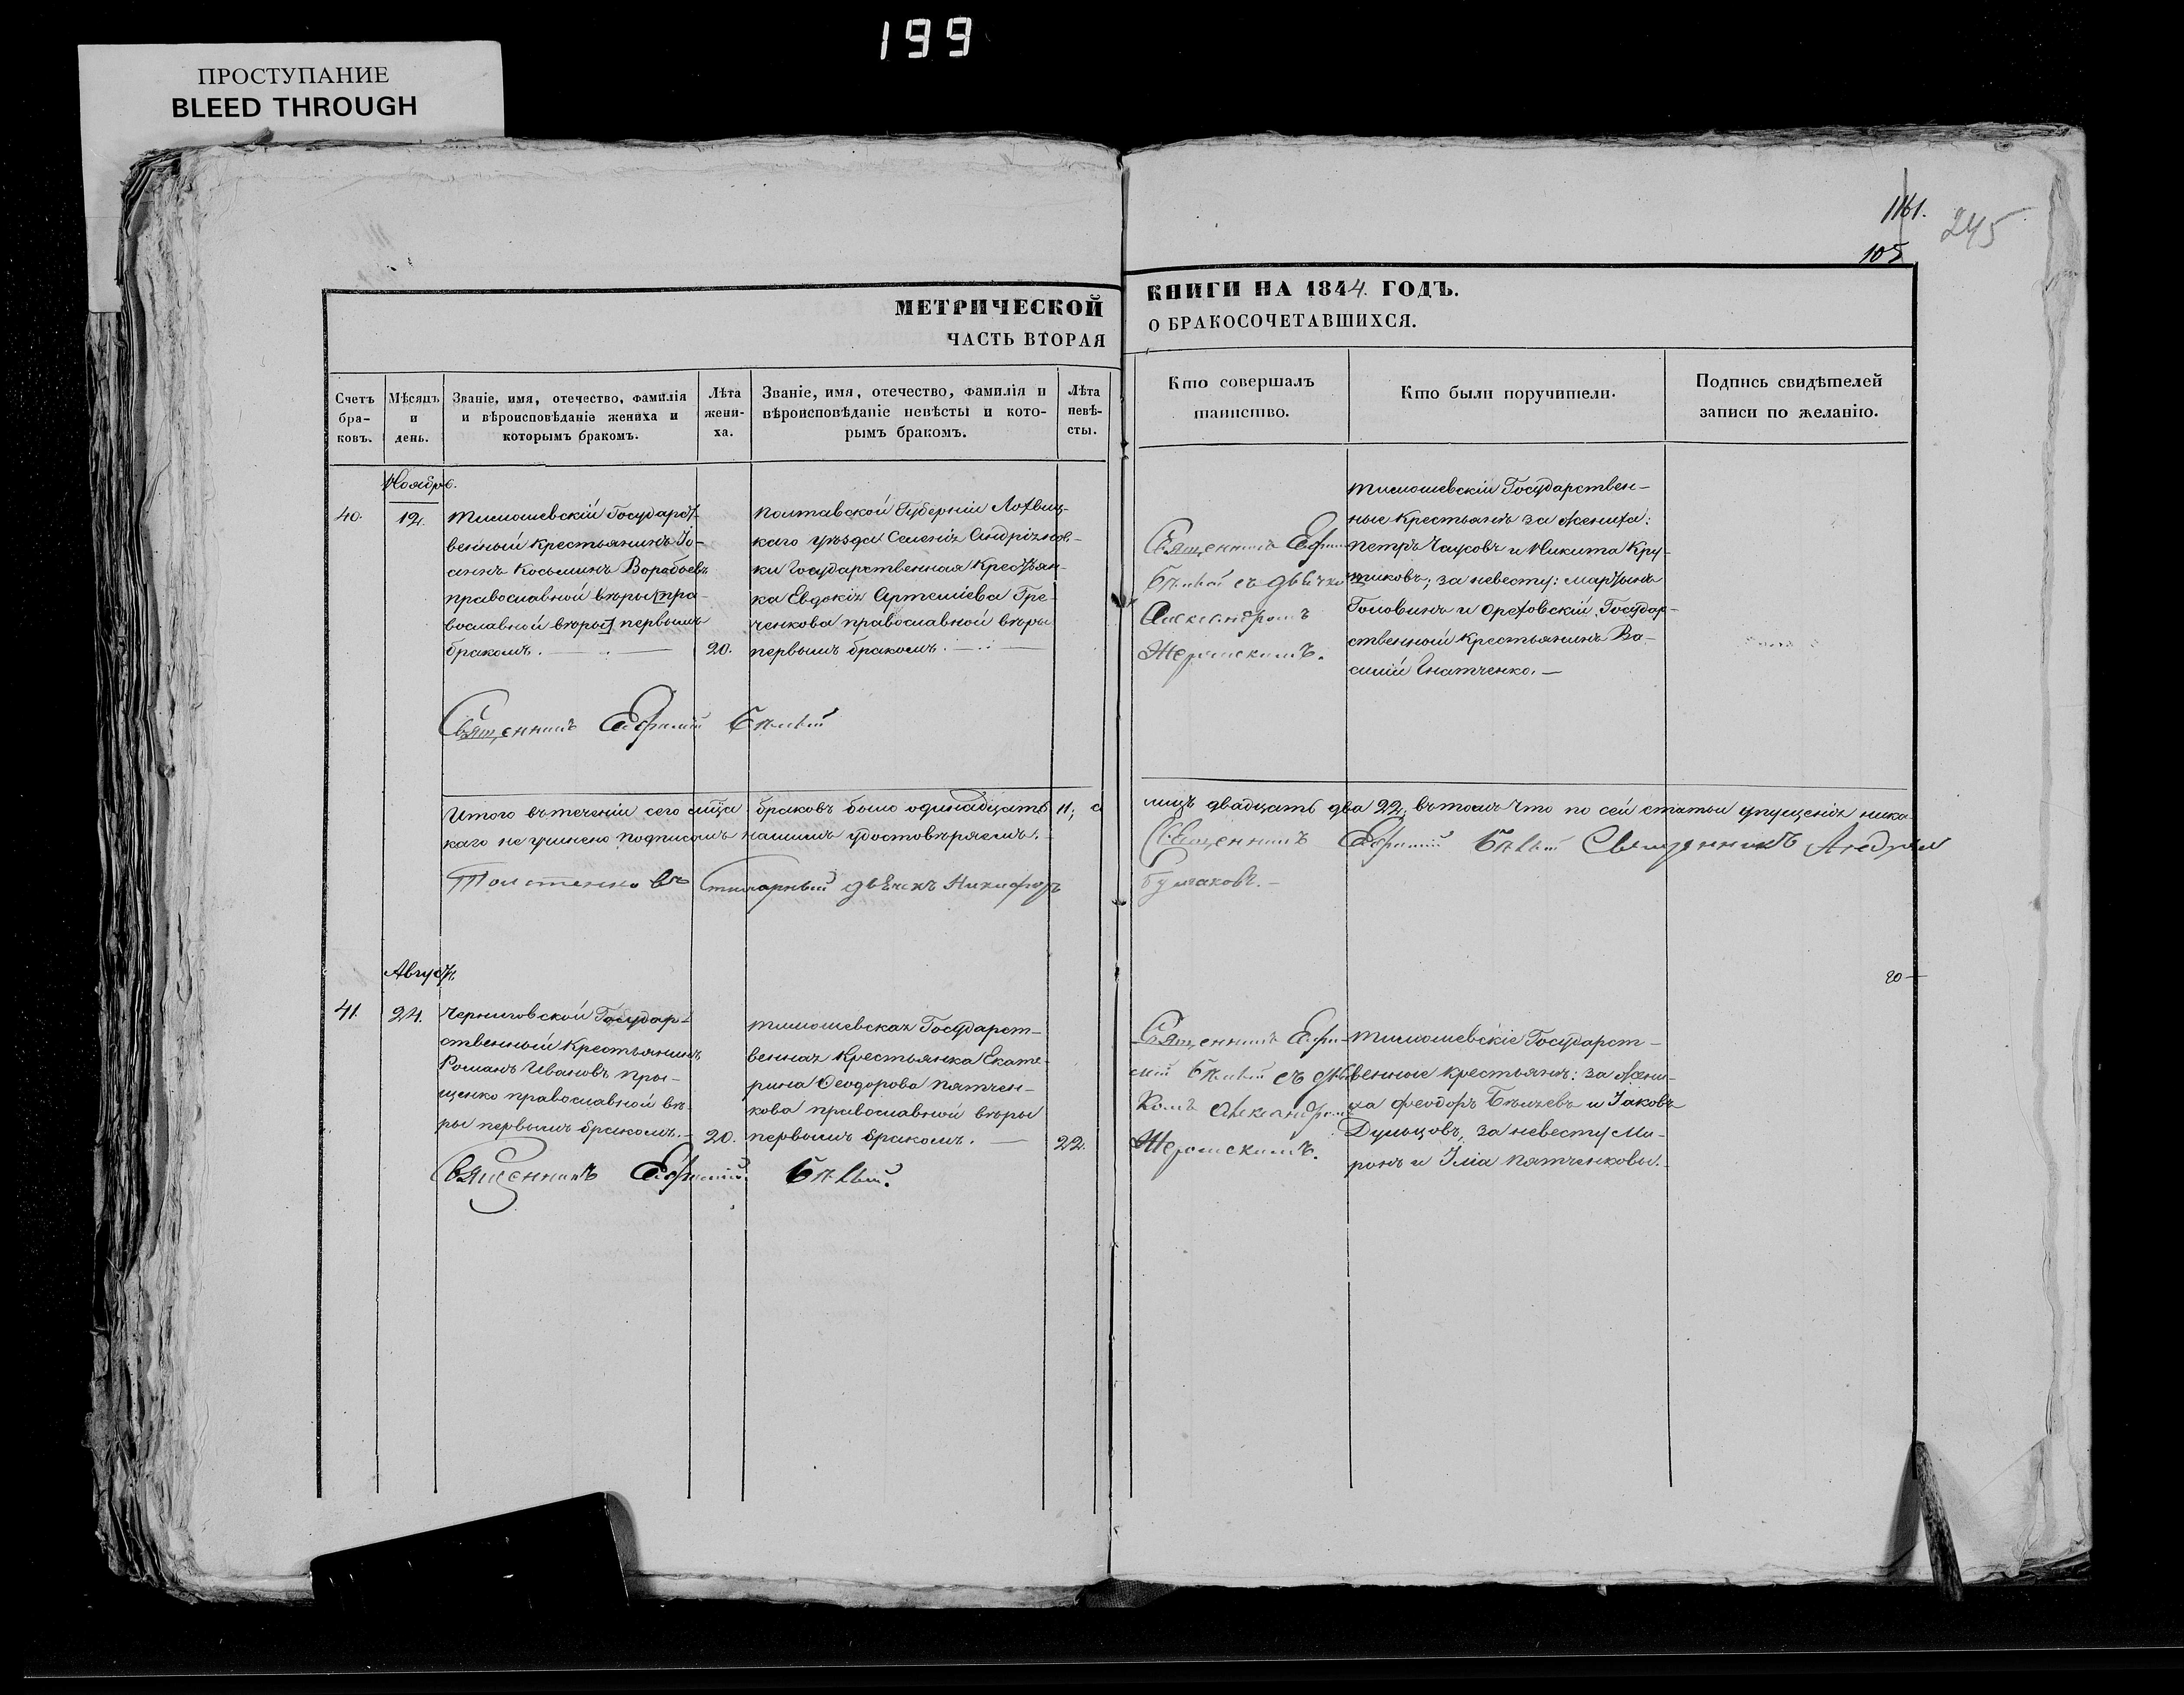 199
ПРОСТУПАНИЕ
BLEED THROUGH
1161.
245
105
МЕТРИЧЕСКОЙ
ЧАСТЬ ВТОРАЯ
КНИГИ НА 1844. ГОДЪ.
О БРАКОСОЧЕТАВШИХСЯ.
Счетъ бра- ковъ.
Мѣсяцъ и день.
Званіе, имя, отечество, фамилія
и вѣроисповѣданіе жениха и
которымъ бракомъ.
Лѣта жени- ха.
Званіе, имя, отечество, фамилія и
вѣроисповѣданіе невѣсты и кото-
рымъ бракомъ.
Лѣта невѣ- сты.
Кто совершалъ
таинство.
Кто были поручители.
Подпись свидѣтелей
записи по желанію.
Ноябрь.
40.
12.
Тимошевскій Государст-
венный крестьянинъ Іо-
аннъ Косьминъ Воробьевъ
православной вѣры [пра-
вославной вѣры] первымъ
бракомъ.
20.
Полтавской Губерніи Лохвиц-
каго уѣзда Селенія Андріяшов-
ки Государственная Крестьян-
ка Евдокія Артеміева Гре-
ченкова православной вѣры
первымъ бракомъ.
Священникъ Ефим
Бѣлый съ дьячком
Александромъ
Жеромскимъ.
Тимошевскіи Государствен-
ные крестьянъ за жениха:
Петръ Чаусовъ и Никита Кру-
тиковъ; за невесту: Мартынъ
Головинъ и Ореховскій Государ-
ственный крестьянинъ Ва-
силій Гнатченко.
Священникъ Ефимій Бѣлый
Итого въ теченіи сего мѣца браковъ было одинадцать 11, а
лицъ двадцать два 22; въ томъ что по сей статьи упущенія ника-
каго не учинено подписомъ нашимъ удостовѣряемъ.
Священникъ Ефимій Бѣлый Священникъ Андрей
Толстенковъ дьячекъ Никифоръ
Булгаковъ.
Августъ
20
41.
24.
Черниговской Государ-
ственный Крестьянинъ
Романъ Ивановъ Пры-
щенко православной вѣ-
ры первымъ бракомъ.
20.
Тимошевская Государст-
венная Крестьянка Екате-
рина Феодорова Пятчен-
кова православной вѣры
первымъ бракомъ.
22.
Священникъ Ефи-
мій Бѣлый съ дья
комъ Александром
Жеромскимъ.
Тимошевскіе Государст-
венные крестьянъ: за жени-
ха Феодоръ Бѣличевъ и Іаковъ
Дульцовъ, за невесту Ми-
ронъ и Иліа Пятченковы.
Священникъ Ефимій Бѣлый.